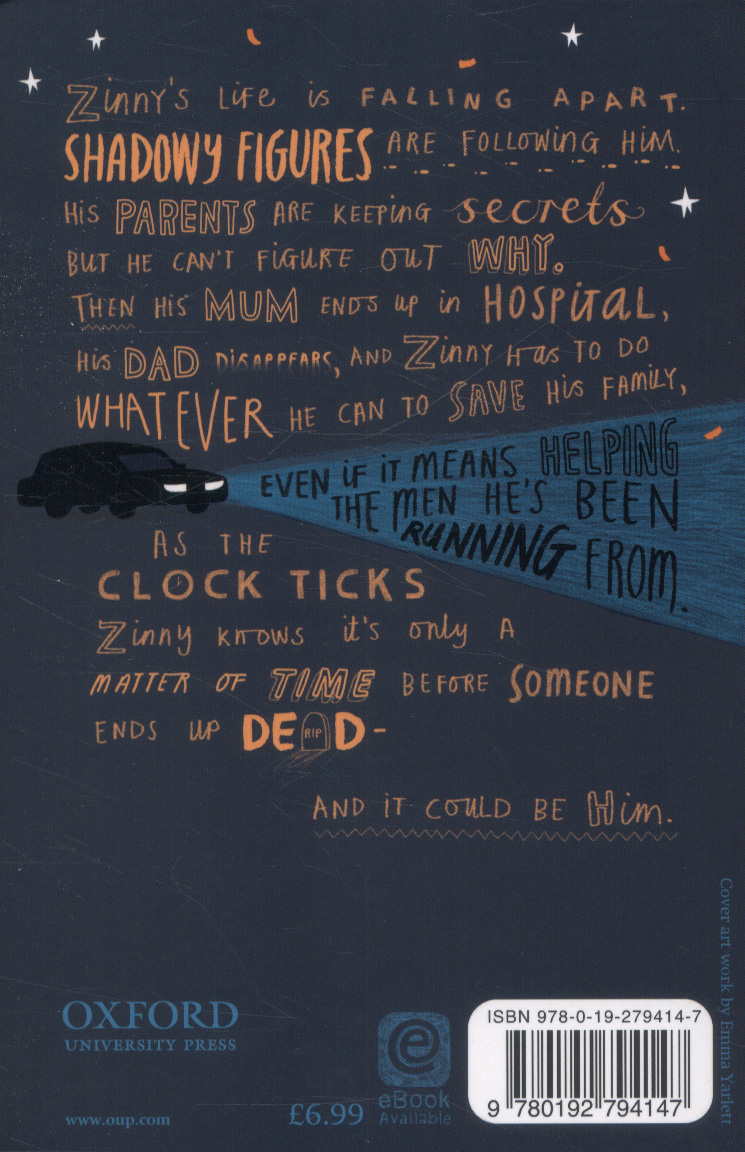 Zinny's Life is FALLING APART.
SHADOWY FIGURES ARE FOLLOWING HIM.
His PARENTS ARE KEEPING secrets
BUT HE CAN'T FIGURE OUT WHY.
THEN HIS MUM ENDS up in HOSPITAL,
His DAD DISAPPEARS, AND Zinny HAS TO DO
WHATEVER HE CAN TO SAVE His FAMILY,
EVEN IF IT MEANS HELPING
THE MEN HE'S BEEN
RUNNING FROM.
AS THE
CLOCK TICKS
Zinny KNOWS it's only A
MATTER OF TIME BEFORE SOMEONE
ENDS UP DEAD-
RIP
AND IT COULD BE Him.
Cover art work by Emma Yarlett
OXFORD
UNIVERSITY PRESS
www.oup.com
£6.99
e
eBook
Available
ISBN 978-0-19-279414-7
9 780192 794147